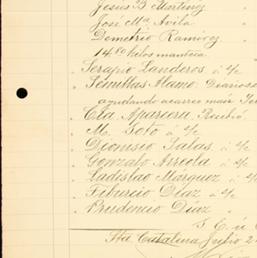 Jesus B Martinez
José Ma. Avila
Demetrio Ramirez
14 60 kilos manteca
Serapio Landeros á c/c
Semillas Alamo
ayudando acarreo maiz
Cía Aparcera. Recibió
M. Soto á c/c
Dionisio Salas á c/c
Gonzalo Arreola á c/c
Ladislao Márquez á c/c
Tiburcio Diaz á c/c
Prudencio Diaz "
S. E. ú O.
Sta Catalina Julio 2